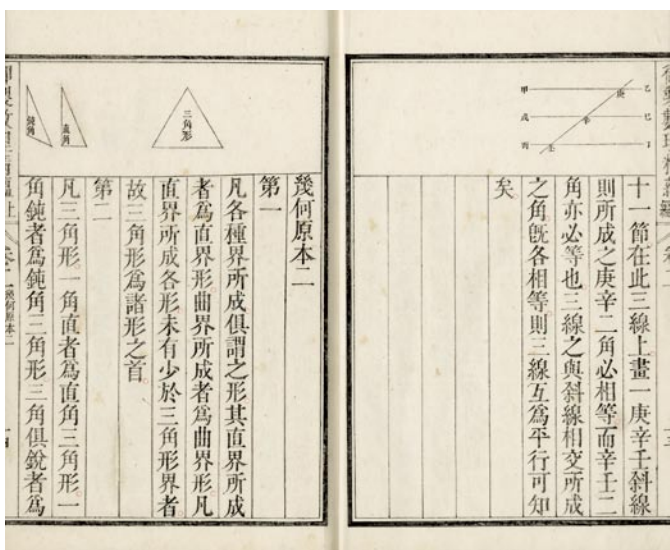 乙
己
丁
甲
戊
丙
庚
辛
壬
十一節在此三線上畫一庚辛壬斜線
則所成之庚辛二角必相等而辛壬二
角亦必等也三線之與斜線相交所成
之角旣各相等則三線互爲平行可知
矣
三角形
直角
鈍角
幾何原本二
第一
凡各種界所成俱謂之形其直界所成
者爲直界形曲界所成者爲曲界形凡
直界所成各形未有少於三角形界者
故三角形爲諸形之首
第二
凡三角形一角直者爲直角三角形一
角鈍者爲鈍角三角形三角俱銳者爲
幾何原本二